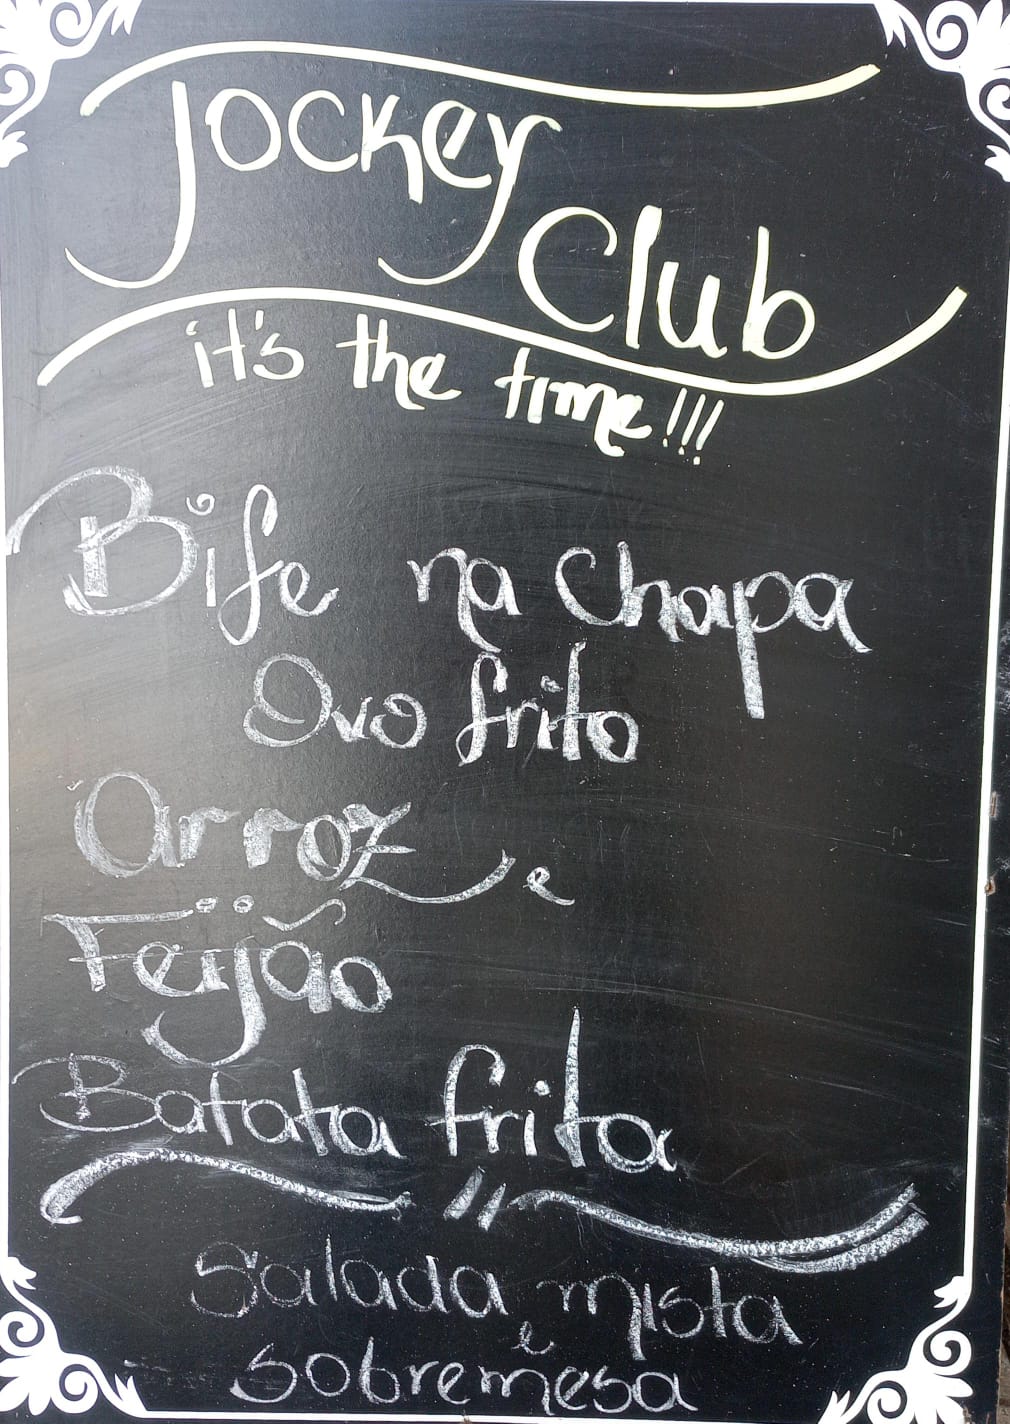 Jockey
Club
it's the time!!!
Bife na Chapa
Ovo frito
Arroz e
Feijão
Batata frita
Salada mista
e
sobremesa